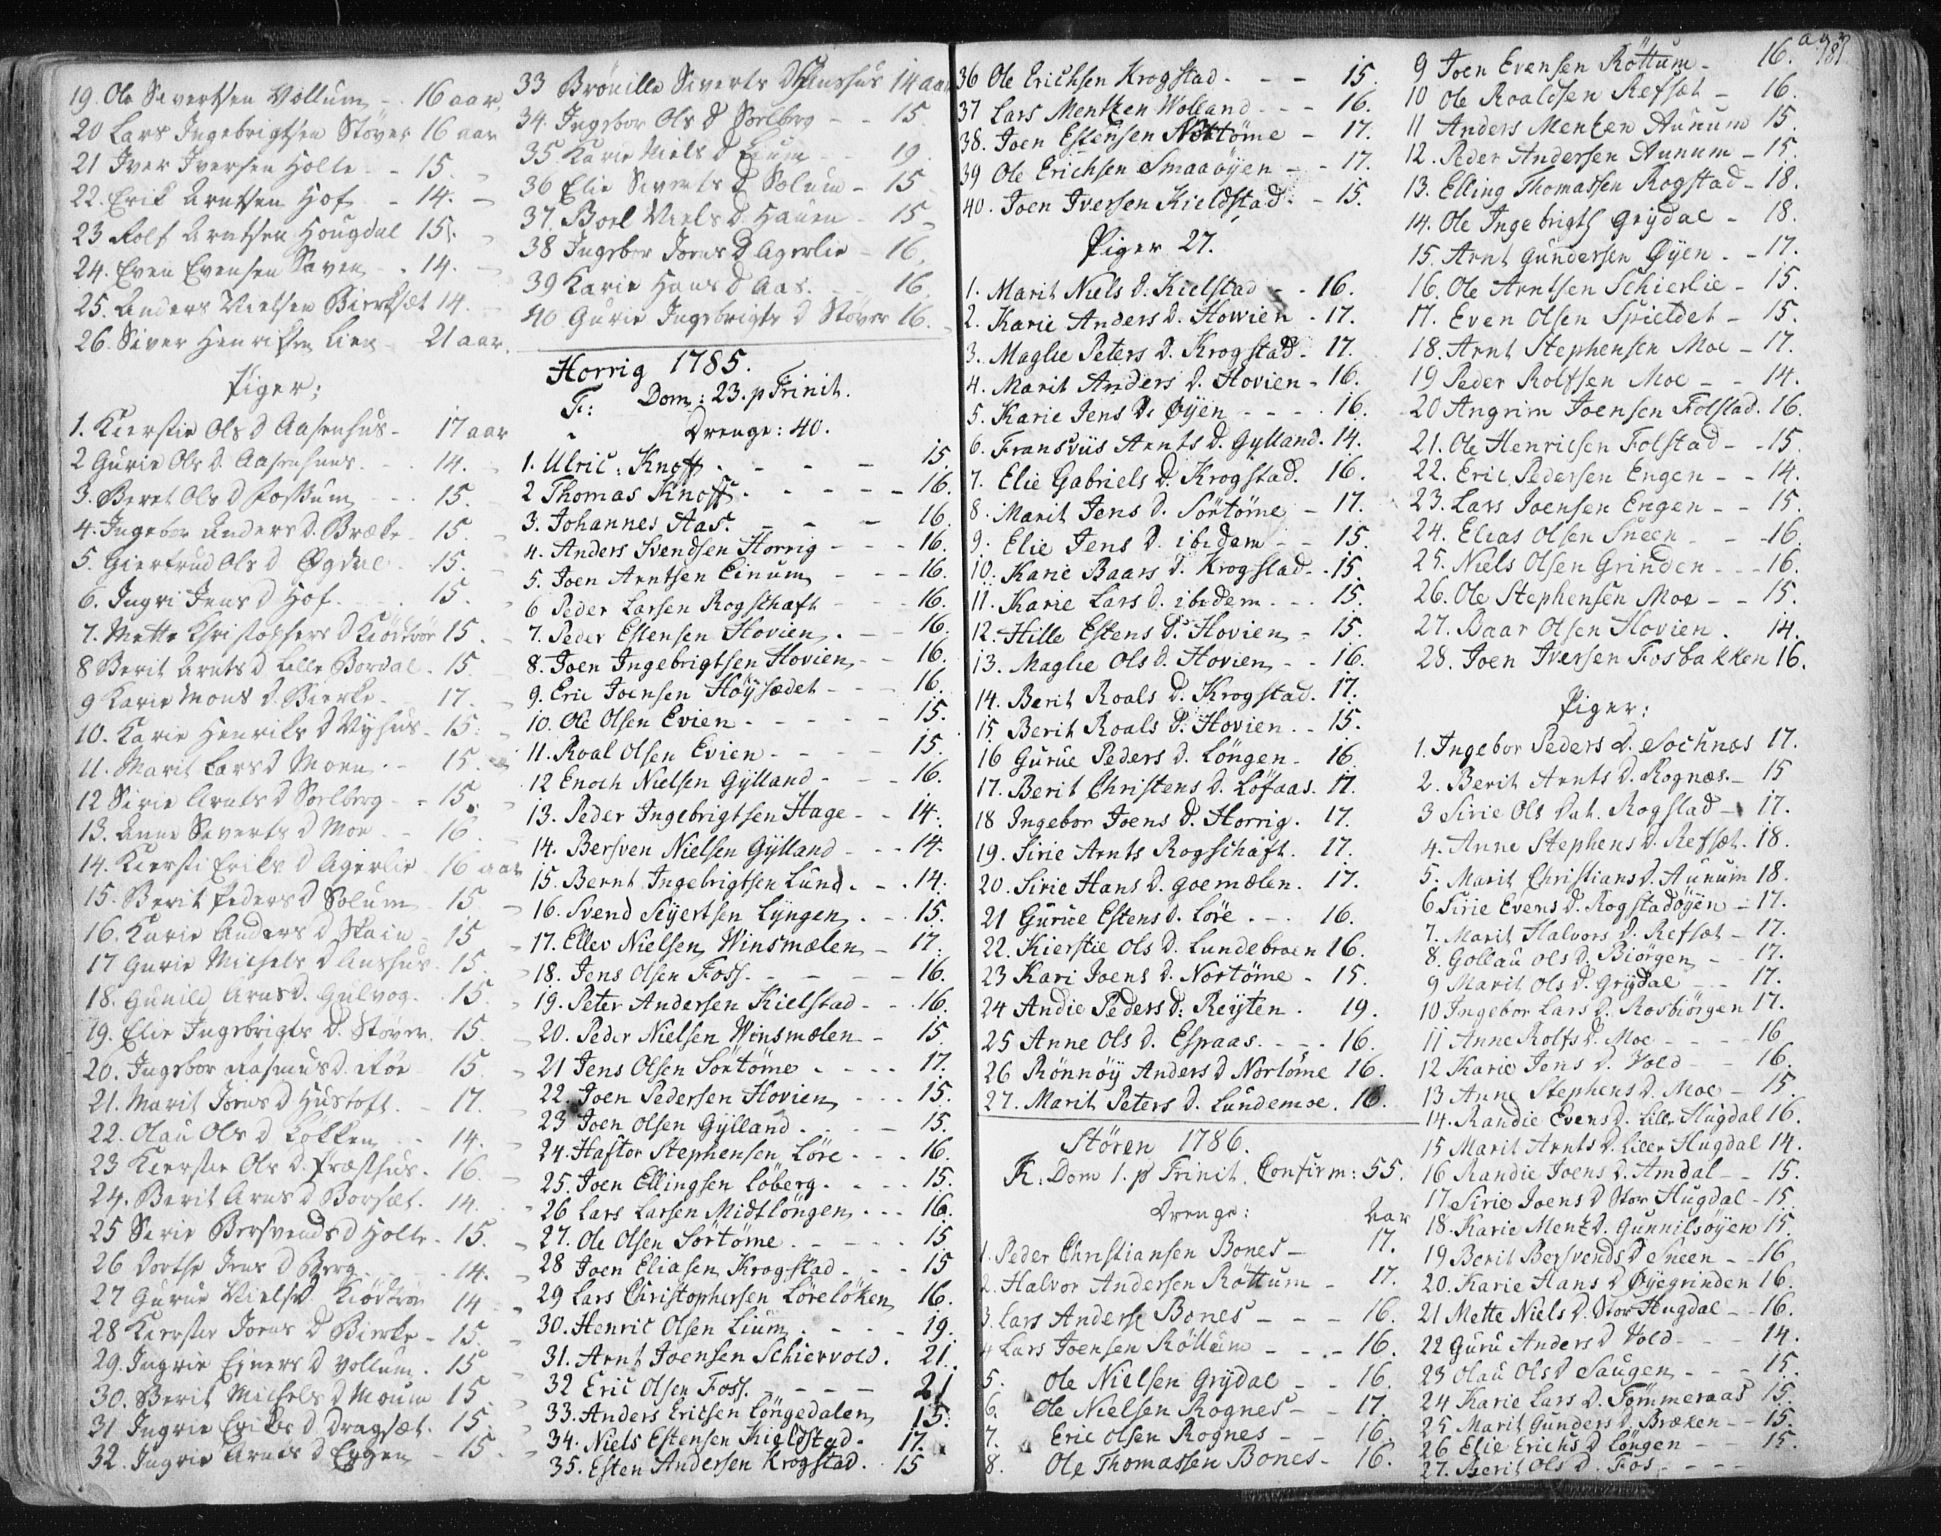 19. Ole Sivertsen Vollum - 16 aar
20 Lars Ingebrigtsen Støver 16 aar
21 Iver Iversen Holte - 15.
22. Erik Arntsen Hof - 14.
23 Rolf Arntsen Hougdal 15.
24. Even Evensen - 14.
25. Anders Nielsen Bierksæt 14.
26. Siver Henriksen Lien - 21 aar.
Piger:
1. Kierstie Ols D Aasenhus - 17 aar
2 Gurie Ols D. Aasenhuus - 14.
3. Beret Ols D Fossum - 15.
4. Ingebor Anders D. Bræke - 15.
5. Giertrud Ols D Øgdal - 15.
6. Ingri Jens D Hof. 15.
7. Mette Christophers D Kiødtrøe 15.
8 Berit Arnts D Lille Bordal. 15.
9 Karie Mons D. Bierke - 17.
10. Karie Henriks D Nyhus - 15.
11. Marit Lars D Moen - 15.
12 Sirie Arnts D Sorlberg - 15.
13. Anne Siverts D Moe - 16
14. Kiersti Eriks D Agerlie - 16 aar
15. Berit Peders D Solum 15
16. Karie Anders D Stain 15
17 Gurie Michels D Aushus. 15.
18. Gunild Arns D. Gulvog. 15.
19. Elie Ingebrigts D. Støver. 15.
20. Ingebor Rasmus D. Røe 15.
21. Marit Joens D Hustoft. - 17.
22. Olau Ols D Løkken - 14.
23 Kierstie Ols D. Præsthus. 16.
24. Berit Arns D Borsæt. 14.
25 Serie Bersvends D Holte - 15.
26 Dorthe Jens D Berg - 14.
27 Gurue Niels D Kiødtrøe 14
28 Kierstie Joens D Bierke - 15.
29. Ingrie Ejners D Vollum. 15
30. Berit Michels D Moum 15
31 Ingrie Eriks D Dragsæt. 15.
32. Ingrie Arnts D Eggen - 15.
33 Brønille Siverts D Aushus 14 aar
34. Ingebor Ols D Sorlberg - - 15.
35 Karie Niels D Lium - 19.
36 Elie Siverts D Solum - 15
37. Boel Niels D. Hauen - 15
38 Ingebor Joens D Agerlie - 16.
39 Karie Hans D Aas. - 16.
40 Gurie Ingebrigts D Støver 16.
Horrig 1785.
F: Dom: 23. p Trinit.
Drenge: 40.
1. Ulric: Knoff. - - - 15
2 Thomas Knoff. - - - 16.
3. Johannes Aas. - - - 16.
4. Anders Svendsen Horrig - - - 16.
5. Joen Arntsen Einum - - - 16.
6 Peder Larsen Rogschaft - - 16.
7. Peder Estensen Hovien. - - 16.
8. Joen Ingebrigtsen Hovien - - 16.
9. Eric Joensen Höysædet - - 16.
10. Ole Olsen Evien - - - 15.
11. Roal Olsen Evien - - - 15.
12 Enoch Nielsen Gylland - - - 16.
13. Peder Ingebrigtsen Hage - - 14.
14. Bersven Nielsen Gylland - - - 14.
15. Bernt Ingebrigtsen Lund. - - 14.
16. Svend Seyertsen Lyngen. - - 15.
17. Ellev Nielsen Winsmælen - 17.
18. Jens Olsen Foss. - - - 16.
19. Peter Andersen Kielstad - - 16.
20. Peder Nielsen Winsmælen - 15.
21 Jens Olsen Sörtöme - - - 17.
22. Joen Pedersen Hovien - - - 15.
23 Joen Olsen Gylland. - - - 15.
24. Haftor Stephensen Löre - - - 16.
25. Joen Ellingsen Löberg. - - - 15.
26 Lars Larsen Midtlöngen - - - 16.
27. Ole Olsen Sörtöme. - - - 15
28 Joen Eliasen Krogstad - - - 15
29 Lars Christophersen Löreløken 16.
30. Henric Olsen Lium. - - - 19.
31. Arnt Joensen Schiervold. 21.
32 Eric Olsen Foss. - - - 21
33. Anders Ericsen Löngedalen 15.
34. Niels Estensen Kieldstad. 17.
35. Esten Andersen Krogstad. 15
36 Ole Erichsen Krogstad - - - 15.
37 Lars Mentzen Wolland - - - 16.
38. Joen Estensen Nortöme - 17.
39 Ole Erichsen Smaaöyen - - 17.
40. Joen Iversen Kieldstad. - 15.
Piger 27.
1. Marit Niels D. Kielstad - - 16.
2. Karie Anders D. Hovien - 17.
3. Maglie Peters D. Krogstad - 17.
4. Marit Anders D. Hovien - 16.
5. Karie Jens D. Øyen - - - 16.
6. Fransviis Arnts D. Gylland. 14.
7. Elie Gabriels D. Krogstad. 16.
8. Marit Jens D. Sörtöme - 17.
9. Elie Jens D. ibidem - - 15.
10. Karie Baars D. Krogstad. - 15.
11. Karie Lars D. ibidem. - - 15.
12. Hille Estens D. Hovien - 15.
13. Maglie Ols D. Hovien - - 16.
14. Berit Roals D. Krogstad. 17.
15. Berit Roals D. Hovien. - - 15.
16 Gurue Peders D. Löngen - 16.
17. Berit Christens D. Löfaas. 17.
18 Ingebor Joens D. Horrig. 17.
19. Sirie Arnts Rogschaft. 17.
20. Sirie Hans D. Goemælen. 17.
21 Gurue Estens D. Löre. - - 16.
22. Kierstie Ols D. Lundebroen 16.
23 Kari Joens D. Nortöme - 15.
24 Andie Peders D. Reyten. 19.
25 Anne Ols D. Espaas. - - - 16.
26 Rönnöy Anders D Nortöme 16.
27. Marit Peters D. Lundemoe. 16.
Stören 1786.
F: Dom 1. p Trinit. Confirm: 55.
Drenge: aar
1. Peder Christiansen Bones - 17.
2. Halvor Andersen Röttum - 17.
3. Lars Anderse Bones - - - 16.
4 Lars Joensen Röttum - - - 16.
5. Ole Nielsen Grydal - - 16.
6. Ole Nielsen Rognes - - 17.
7. Eric Olsen Rognes - - 16.
8. Ole Thomassen Bones - 16.
aar
181
9 Joen Evensen Röttum - 16.
10 Ole Roaldsen Refsæt - 16.
11 Anders Mentzen Aunum 15.
12. Peder Andersen Aunum - 15.
13. Elling Thomassen Rogstad - 18.
14. Ole Ingebrigts Grydal - 18.
15. Arnt Gundersen Øyen - - 17.
16. Ole Arntsen Schierlie - 15.
17. Even Olsen Spieldet - 15.
18. Arnt Stephensen Moe - 17.
19 Peder Rolfsen Moe - - 14.
20 Angrim Joensen Folstad. 16.
21. Ole Henricsen Folstad - - 15.
22. Eric Pedersen Engen - - 14.
23. Lars Joensen Engen - - 15.
24. Elias Olsen Sneen - - 16.
25. Niels Olsen Grinden - - - 16.
26. Ole Stephensen Moe - - 15.
27. Baar Olsen Hovien. 14.
28. Joen Iversen Fosbakken 16.
Piger:
1. Ingebor Peders D. Sochnæs 17.
2. Berit Arnts D. Rognæs. - 15
3 Sirie Ols Dat. Rogstad - 17.
4. Anne Stephens D. Refsæt. 18.
5. Marit Christians D. Aunum 18.
6 Sirie Evens D. Rogstadöyen - 17.
7. Marit Halvors D. Refsæt - 17.
8. Gollau Ols D. Biorgen - - 17.
9 Marit Ols D. Grydal - - 17.
10 Ingebor Lars D. Rosbiörgen 17.
11 Anne Rolfs D. Moe - - - 16
12 Karie Jens D. Vold - - 16.
13 Anne Stephens D. Moe - 15
14. Randie Evens D. Lille Hugdal 16.
15 Marit Arnts D. Lille Hugdal 14.
16 Randie Joens D. Amdal - - 15.
17 Sirie Joens D Stor Hugdal - 15
18. Karie Mentz D. Gunnilsöyen 15
19 Berit Bersvends D Sneen - - 16
20. Karie Hans D Øyegrinden 16.
21 Mette Niels D. Stor Hugdal - - 16.
22 Guru Anders D Vold - - - 14.
23 Olau Ols D Haugen - - - 15.
24 Karie Lars D. Tömmeraas 15.
25. Marit Gunders D. Bræken - - 15.
26 Elie Erichs D Löngen - - 15.
27. Berit Ols D. Fos - - -